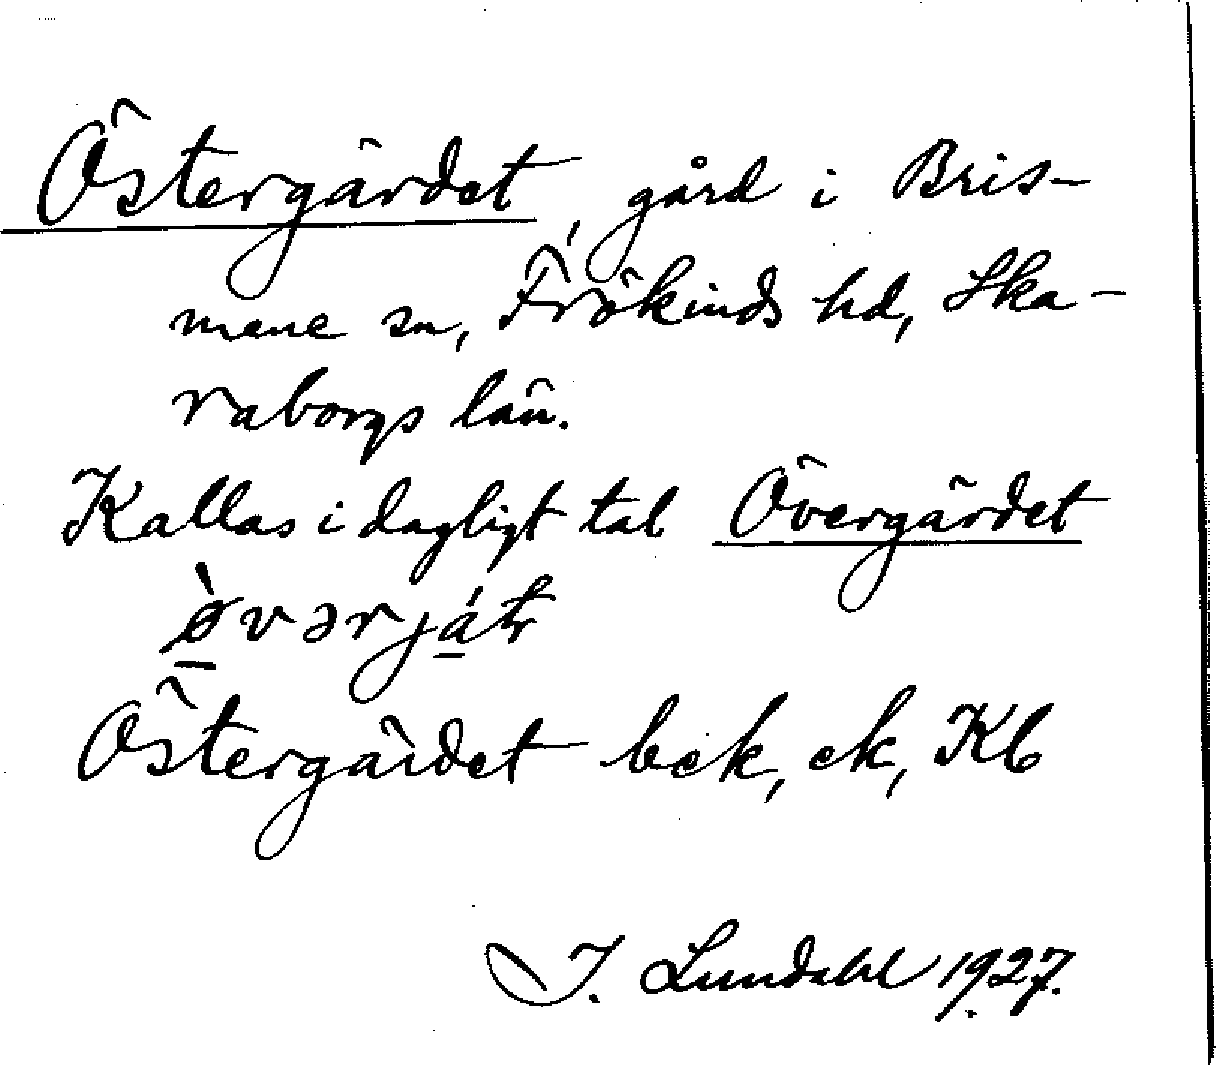 Östergärdet, gård i Bris-
mene sn, Frökinds hd, Ska-
raborgs län.
Kallas i dagligt tal Övergärdet
ø̀vərjátr
Östergärdet bek, ek, Kb
I. Lundahl 1927.